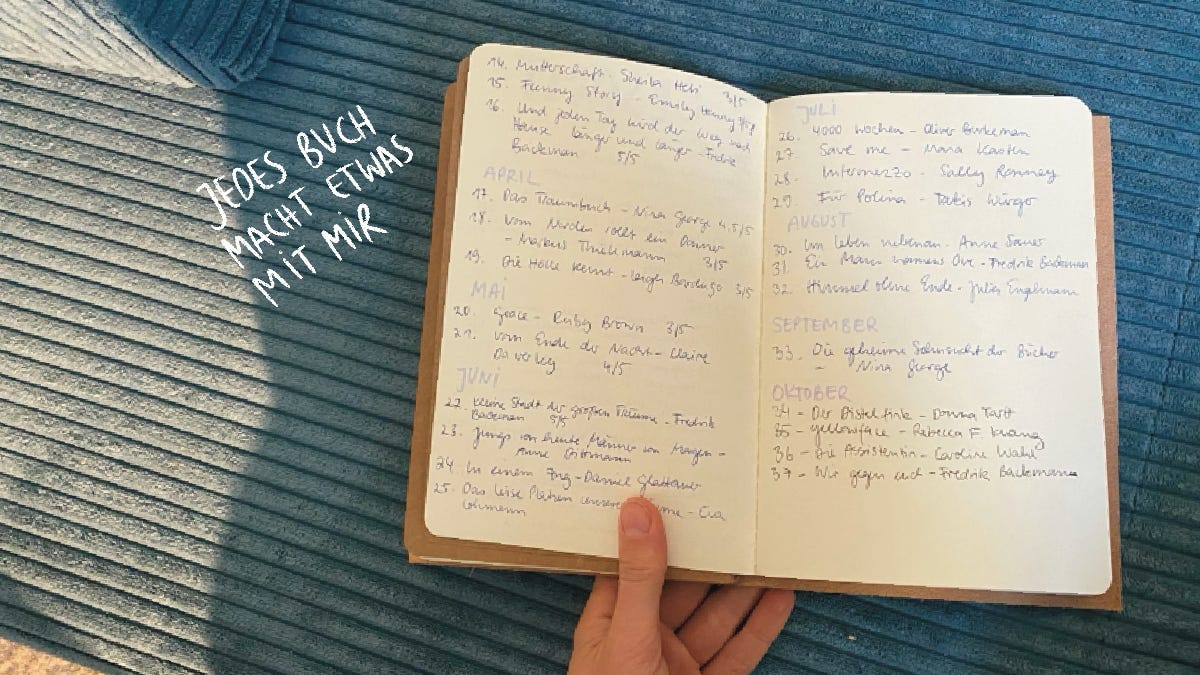 JEDES BUCH
MACHT ETWAS
MIT MIR
14. Mutterschaft. Sheila Heti 3/5
15. Funny Story - Emily Henry
16. Und jeden Tag wird der Weg nach
Hause länger und länger - Fredrik
Backman 5/5
APRIL
17. Das Traumbuch - Nina George 4,5/5
18. Vom Norden rollt ein Donner
- Markus Thielemann 3/5
19. Die Hölle kennt - Leigh Bardugo 3/5
MAI
20. Grace - Ruby Brown 3/5
21. Vom Ende der Nacht - Claire
Daverley 4/5
JUNI
22. Kleine Stadt der großen Träume - Fredrik
Backman 5/5
23. Jungs von heute Männer von Morgen -
Anne Dittmann
24. In einem Zug - Daniel Glattauer
25. Das leise Platzen unserer - Eva
Lohmann
JULI
26. 4000 Wochen - Oliver Burkeman
27. Save me - Mona Kasten
28. Intermezzo - Sally Rooney
29. Für Polina - Takis Würger
AUGUST
30. Im Leben nebenan. Anne Sauer
31. Ein Mann namens Ove - Fredrik Backman
32. Himmel ohne Ende - Julia Engelmann
SEPTEMBER
33. Die geheime Sehnsucht der Bücher
- Nina George
OKTOBER
34 - Der Distelfink - Donna Tartt
35 - Yellowface - Rebecca F. Kuang
36 - Die Assistentin - Caroline Wahl
37 - Wir gegen euch - Fredrik Backman